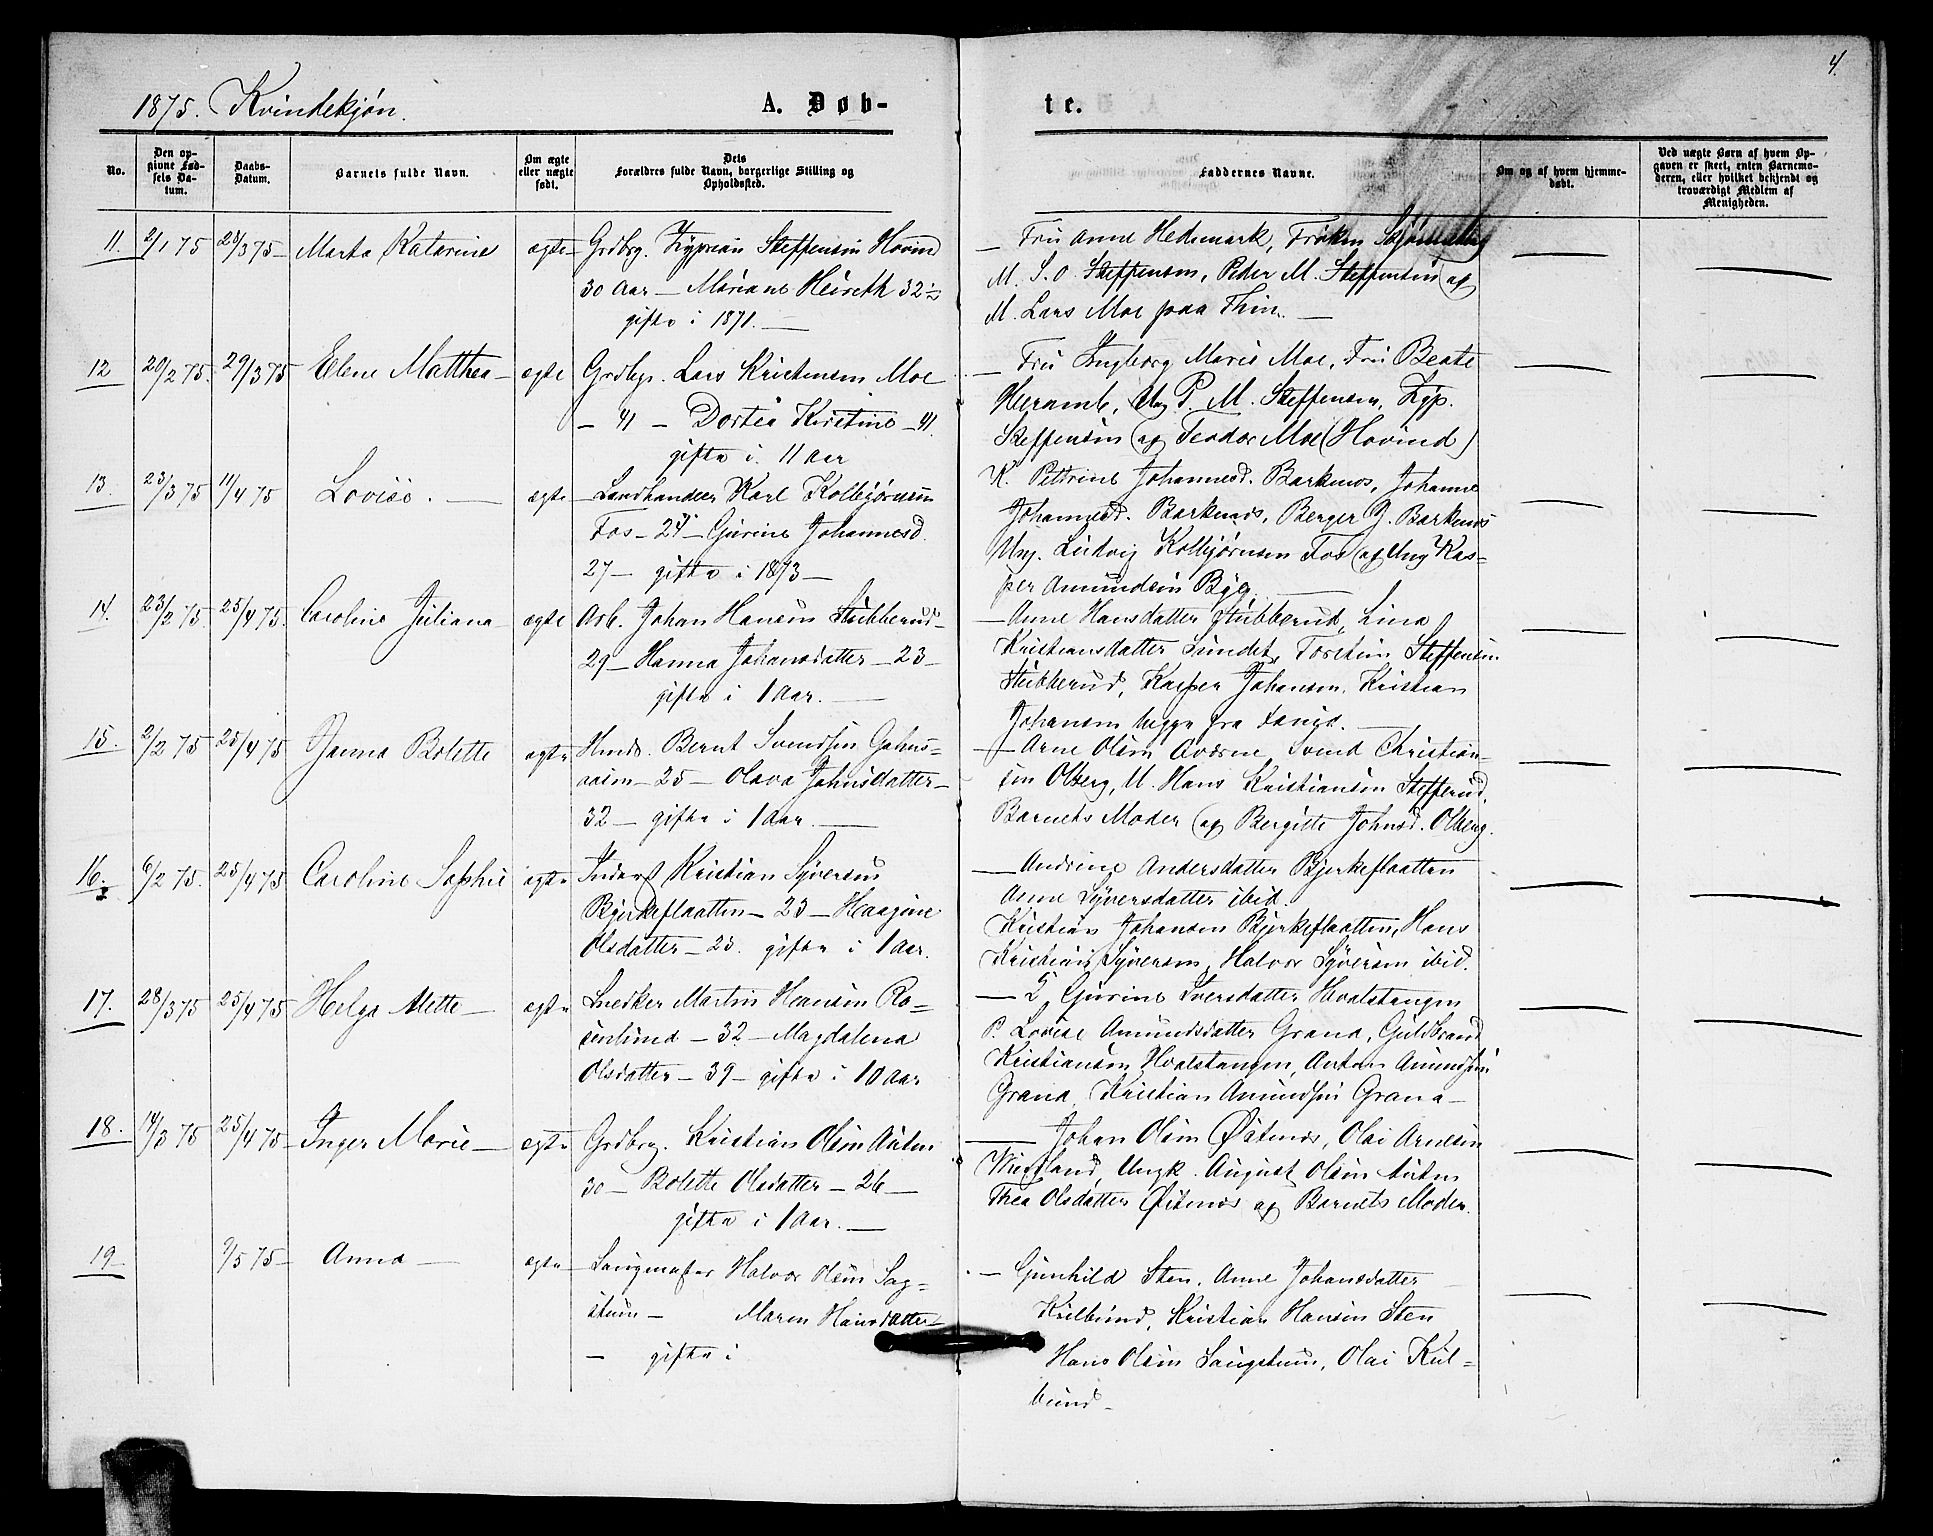 4.
1875. Kvindekjøn.
A. Døb-
te.
No.
Den op-
givne Fød-
sels Da-
tum.
Daabs-
Datum.
Barnets fulde Navn.
Om ægte
eller uægte
født.
Dets
Forældres fulde Navn, borgerlige Stilling og
Opholdssted.
Faddernes Navne.
Om og af hvem hjemme-
døbt.
Ved uægte Børn af hvem Op-
gaven er skeet, enten Barnemo-
deren, eller hvilket bekjendt og
troværdigt Medlem af
Menigheden.
11. 2/1 75 28/3 75 Marta Katarine ægte
Grdbrg. Zyprian Steffensen Hovind
30 Aar - Mariane Heireth 32 ½
gifte i 1871.
Fru Anne Hedemark, Frøken
M. S. O. Steffensen, Peder M. Steffensen og
M. Lars Moe paa Thin.
12 20/2 75. 29/3 75 Elene Matthea ægte
Grdbgr. Lars Kristensen Moe
- 41 - Dortea Kirstine - 41.
gifte i 11 Aar
Fru Ingborg Marie Moe, Fru Beate
Heramb, Ung P. M. Steffensen, Zyp.
Steffensen og Teodor Moe (Hovind)
13. 23/3 75 11/4 75 Lovise. ægte
Landhandler Karl Kolbjørnsen
Fos - 24 - Gurine Johannesd.
27 - gifte i 1873 -
K. Pettrine Johannesd. Barknes, Johanne
Johannesd. Barknes, Berger J. Barknes
Ung. Ludvig Kolbjørnsen Fos og Ung Kas-
per Amundsen Byg.
14. 23/2 75. 25/4 75. Caroline Juliana ægte
Arb. Johan Hansen Stubberud -
29 - Hanna Johansdatter - 23 -
gifte i 1 Aar.
Anne Hansdatter Stubberud, Lina
Kristiansdatter Sundet, Torstein Steffensen
Stubberud, Kasper Johansen, Kristian
Johansen begge fra
15. 2/2 75 25/4 75 Janna Bolette ægte
Bernt Svendsen
25 - Olava Johnsdatter -
32 - gifte i 1 Aar.
Arne Olsen Averne, Svend Christian-
sen Olberg, U. Hans Kristiansen Stefferud,
Barnets Moder og Bergitte Johnsd. Olberg.
16. 6/2 75. 25/4 75 Caroline Sophie ægte
Inderst Kristian Syversen
Bjerkeflaatten - 23 - Haagine
Olsdatter - 23. gifte i 1 Aar.
Andrine Andersdatter Bjerkeflaatten
Anne Syversdatter ibid.
Kristian Johansen Bjerkeflaatten, Hans
Kristian Syversen, Halvor Syversen ibid.
17. 28/3 75 25/4 75 Helga Mette - ægte
Snedker Martin Hansen Ro-
senlund - 32 - Magdalena
Olsdatter - 39 - gifte i 10 Aar
Gurine Iversdatter Hvalstangen
P. Lovise Amundsdatter Grana, Gulbrand
Kristiansen Hvalstangen, Anton Amundsen
Grana, Kristian Amundsen Grana -
18. 14/3 75 25/4 75 Inger Marie - ægte
Grdbrg. Kristian Olsen Auten
30 - Bolette Olsdatter - 26 -
gifte i 1 Aar.
Johan Olsen Østenes, Olai Arnesen
Ungk. August Olsen Auten
Thea Olsdatter Østenes og Barnets Moder.
19 2/5 75 Anna - ægte
Laugmester Halvor Olsen Sag-
stuen - Maren Hansdatter
- gifte i
Gunhild Sten, Anne Johansdatter
Kulbund, Kristian Hansen Sten
Hans Olsen Saugstuen, Olai Kul-
bund -